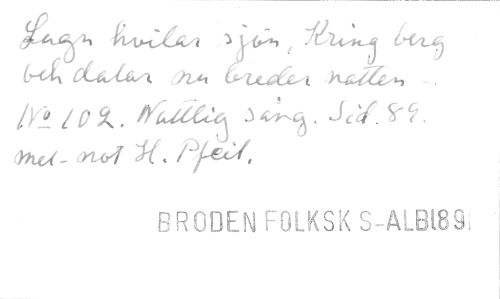 Lugn hvilar sjön, Kring berg
och dalar nu breder natten -.
No 102. Nattlig sång. Sid. 89.
mel- not H. Pfeil.
BRODEN FOLKSK S-ALB1891